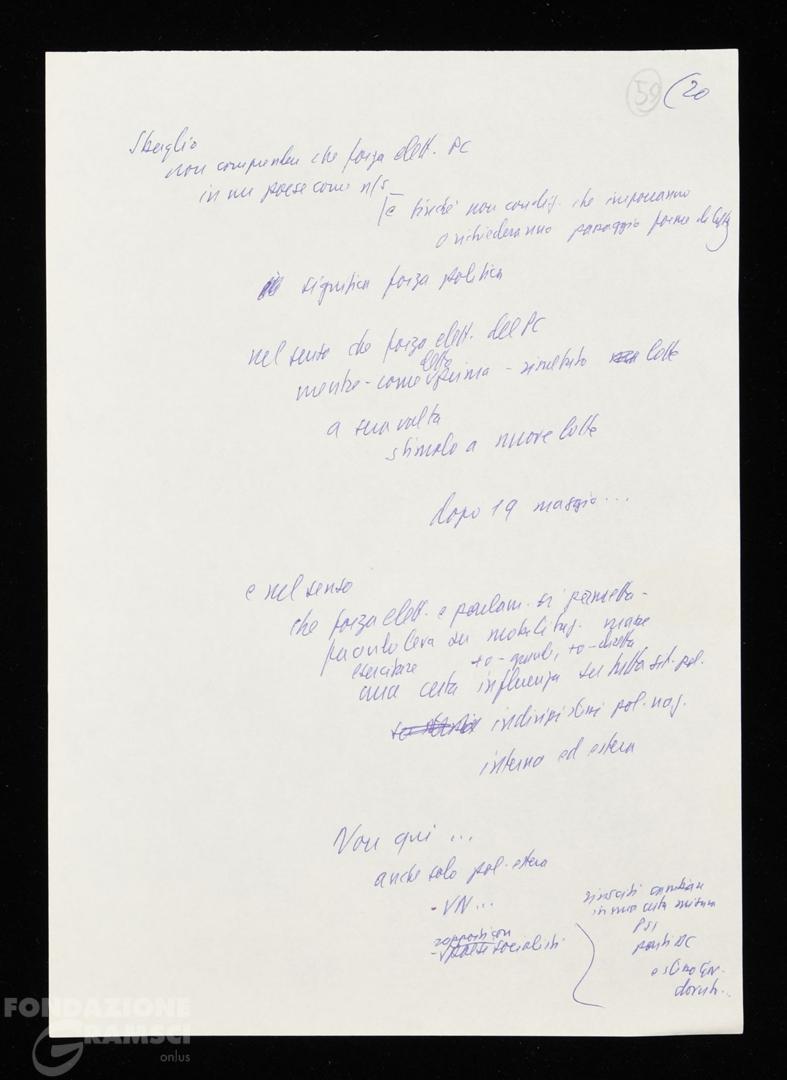 59 (20
Sbaglio
non comprendere che forza elett. PC
in un paese come n/s
e finché non condiz. che imporranno
o richiederanno passaggio forme di lotta
significa forza politica
nel senso che forza elett. del PC
mentre - come detto prima - risultato lotte
a sua volta
stimolo a nuove lotte
dopo 19 maggio...
e nel senso
che forza elett. e parlam. si permette
facendo leva su mobilitaz. masse
esercitare +o- grande, +o- diretta
una certa influenza su tutta sit. pol.
indirizzi pol. naz.
interna ed estera
Non qui ...
anche solo pol. estera
- VN...
rapporti con
- paesi socialisti
riusciti cambiare
in una certa misura
PSI
parti DC
e stesso Gov.
dovuto..
FONDAZIONE
GRAMSCI
onlus